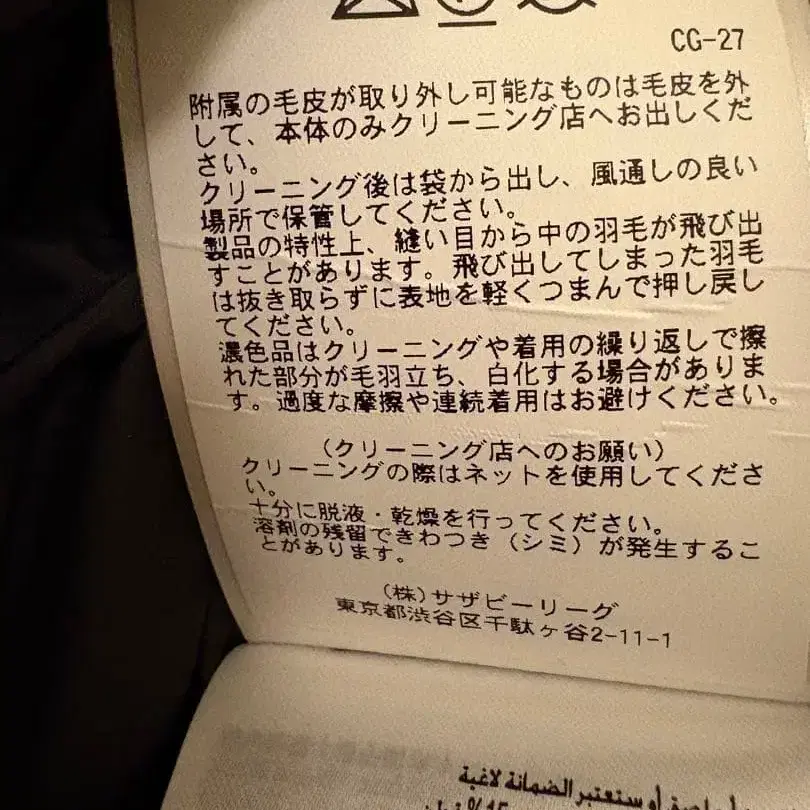 CG-27
附属の毛皮が取り外し可能なものは毛皮を外
して、本体のみクリーニング店へお出しくだ
さい。
クリーニング後は袋から出し、風通しの良い
場所で保管してください。
製品の特性上、縫い目から中の羽毛が飛び出
すことがあります。飛び出してしまった羽毛
は抜き取らずに表地を軽くつまんで押し戻し
てください。
濃色品はクリーニングや着用の繰り返しで擦
れた部分が毛羽立ち、白化する場合がありま
す。過度な摩擦や連続着用はお避けください。
(クリーニング店へのお願い)
クリーニングの際はネットを使用してくださ
い。
十分に脱液・乾燥を行ってください。
溶剤の残留できわつき(シミ)が発生するこ
とがあります。
(株)サザビーリーグ
東京都渋谷区千駄ヶ谷2-11-1
أو ستعتبر الضمانة لاغية